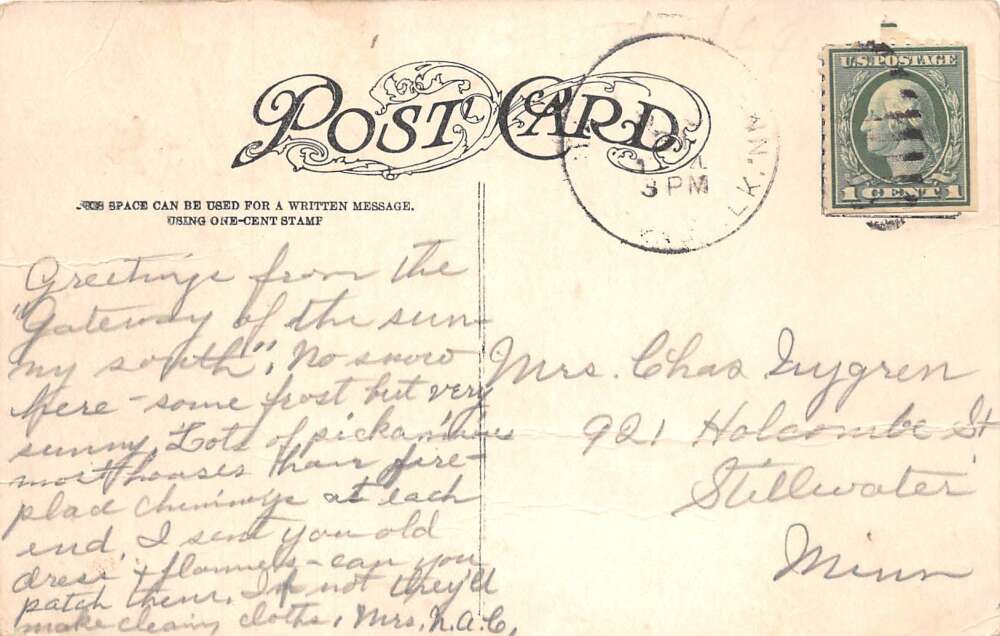 POST CARD
U.S. POSTAGE
1 CENT 1
3 PM
SPACE CAN BE USED FOR A WRITTEN MESSAGE.
USING ONE-CENT STAMP
Greetings from the
"Gateway of the sun-
ny south". No snow
here - some frost but very
sunny. Lots of pickaninnies
most houses have fire-
plad chimneys at each
end. I sent you old
dress & flannels - can you
patch them. If not they'll
make cleaning cloths. Mrs. N.A.C.
Mrs. Chas
921 Holcombe St
Stillwater
Minn